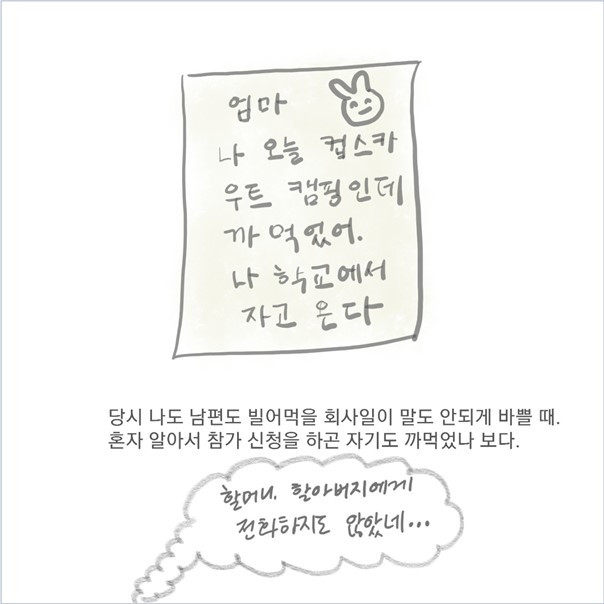 엄마
나 오늘 컵스카
우트 캠핑인데
까먹었어.
나 학교에서
자고 온다
당시 나도 남편도 빌어먹을 회사일이 말도 안되게 바쁠 때.
혼자 알아서 참가 신청을 하곤 자기도 까먹었나 보다.
할머니. 할아버지에게
전화하지도 않았네...